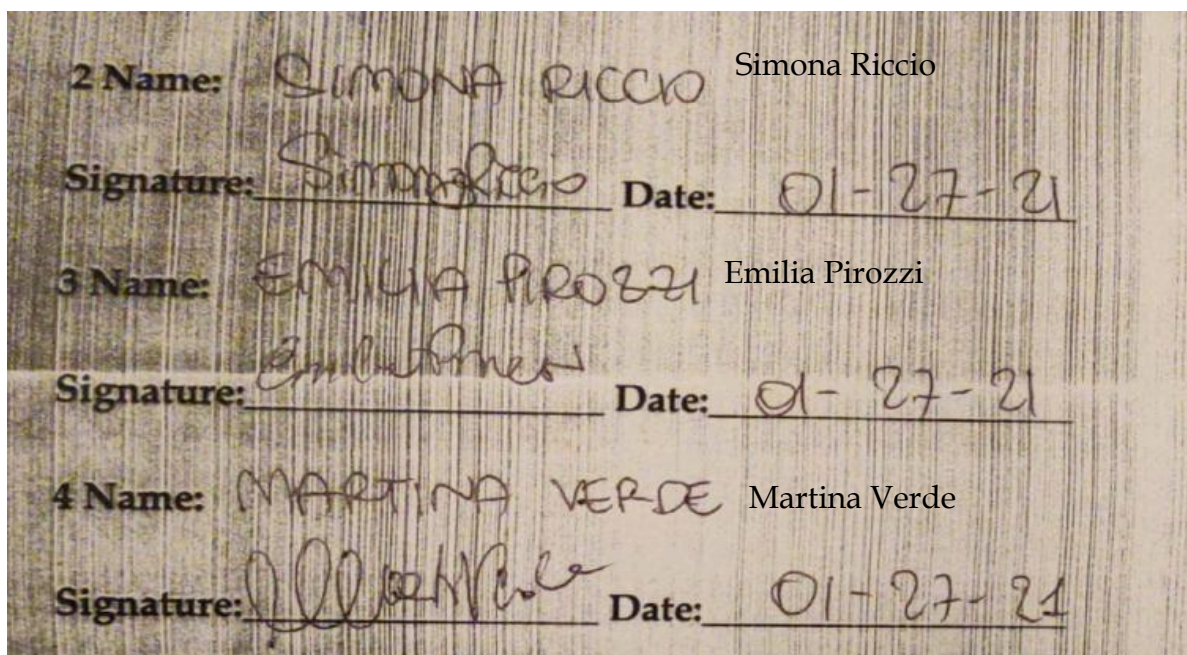 2 Name: SIMONA RICCIO Simona Riccio
Signature: Simona Riccio Date: 01-27-21
3 Name: EMILIA PIROZZI Emilia Pirozzi
Signature: Date: 01-27-21
4 Name: MARTINA VERDE Martina Verde
Signature: Date: 01-27-21